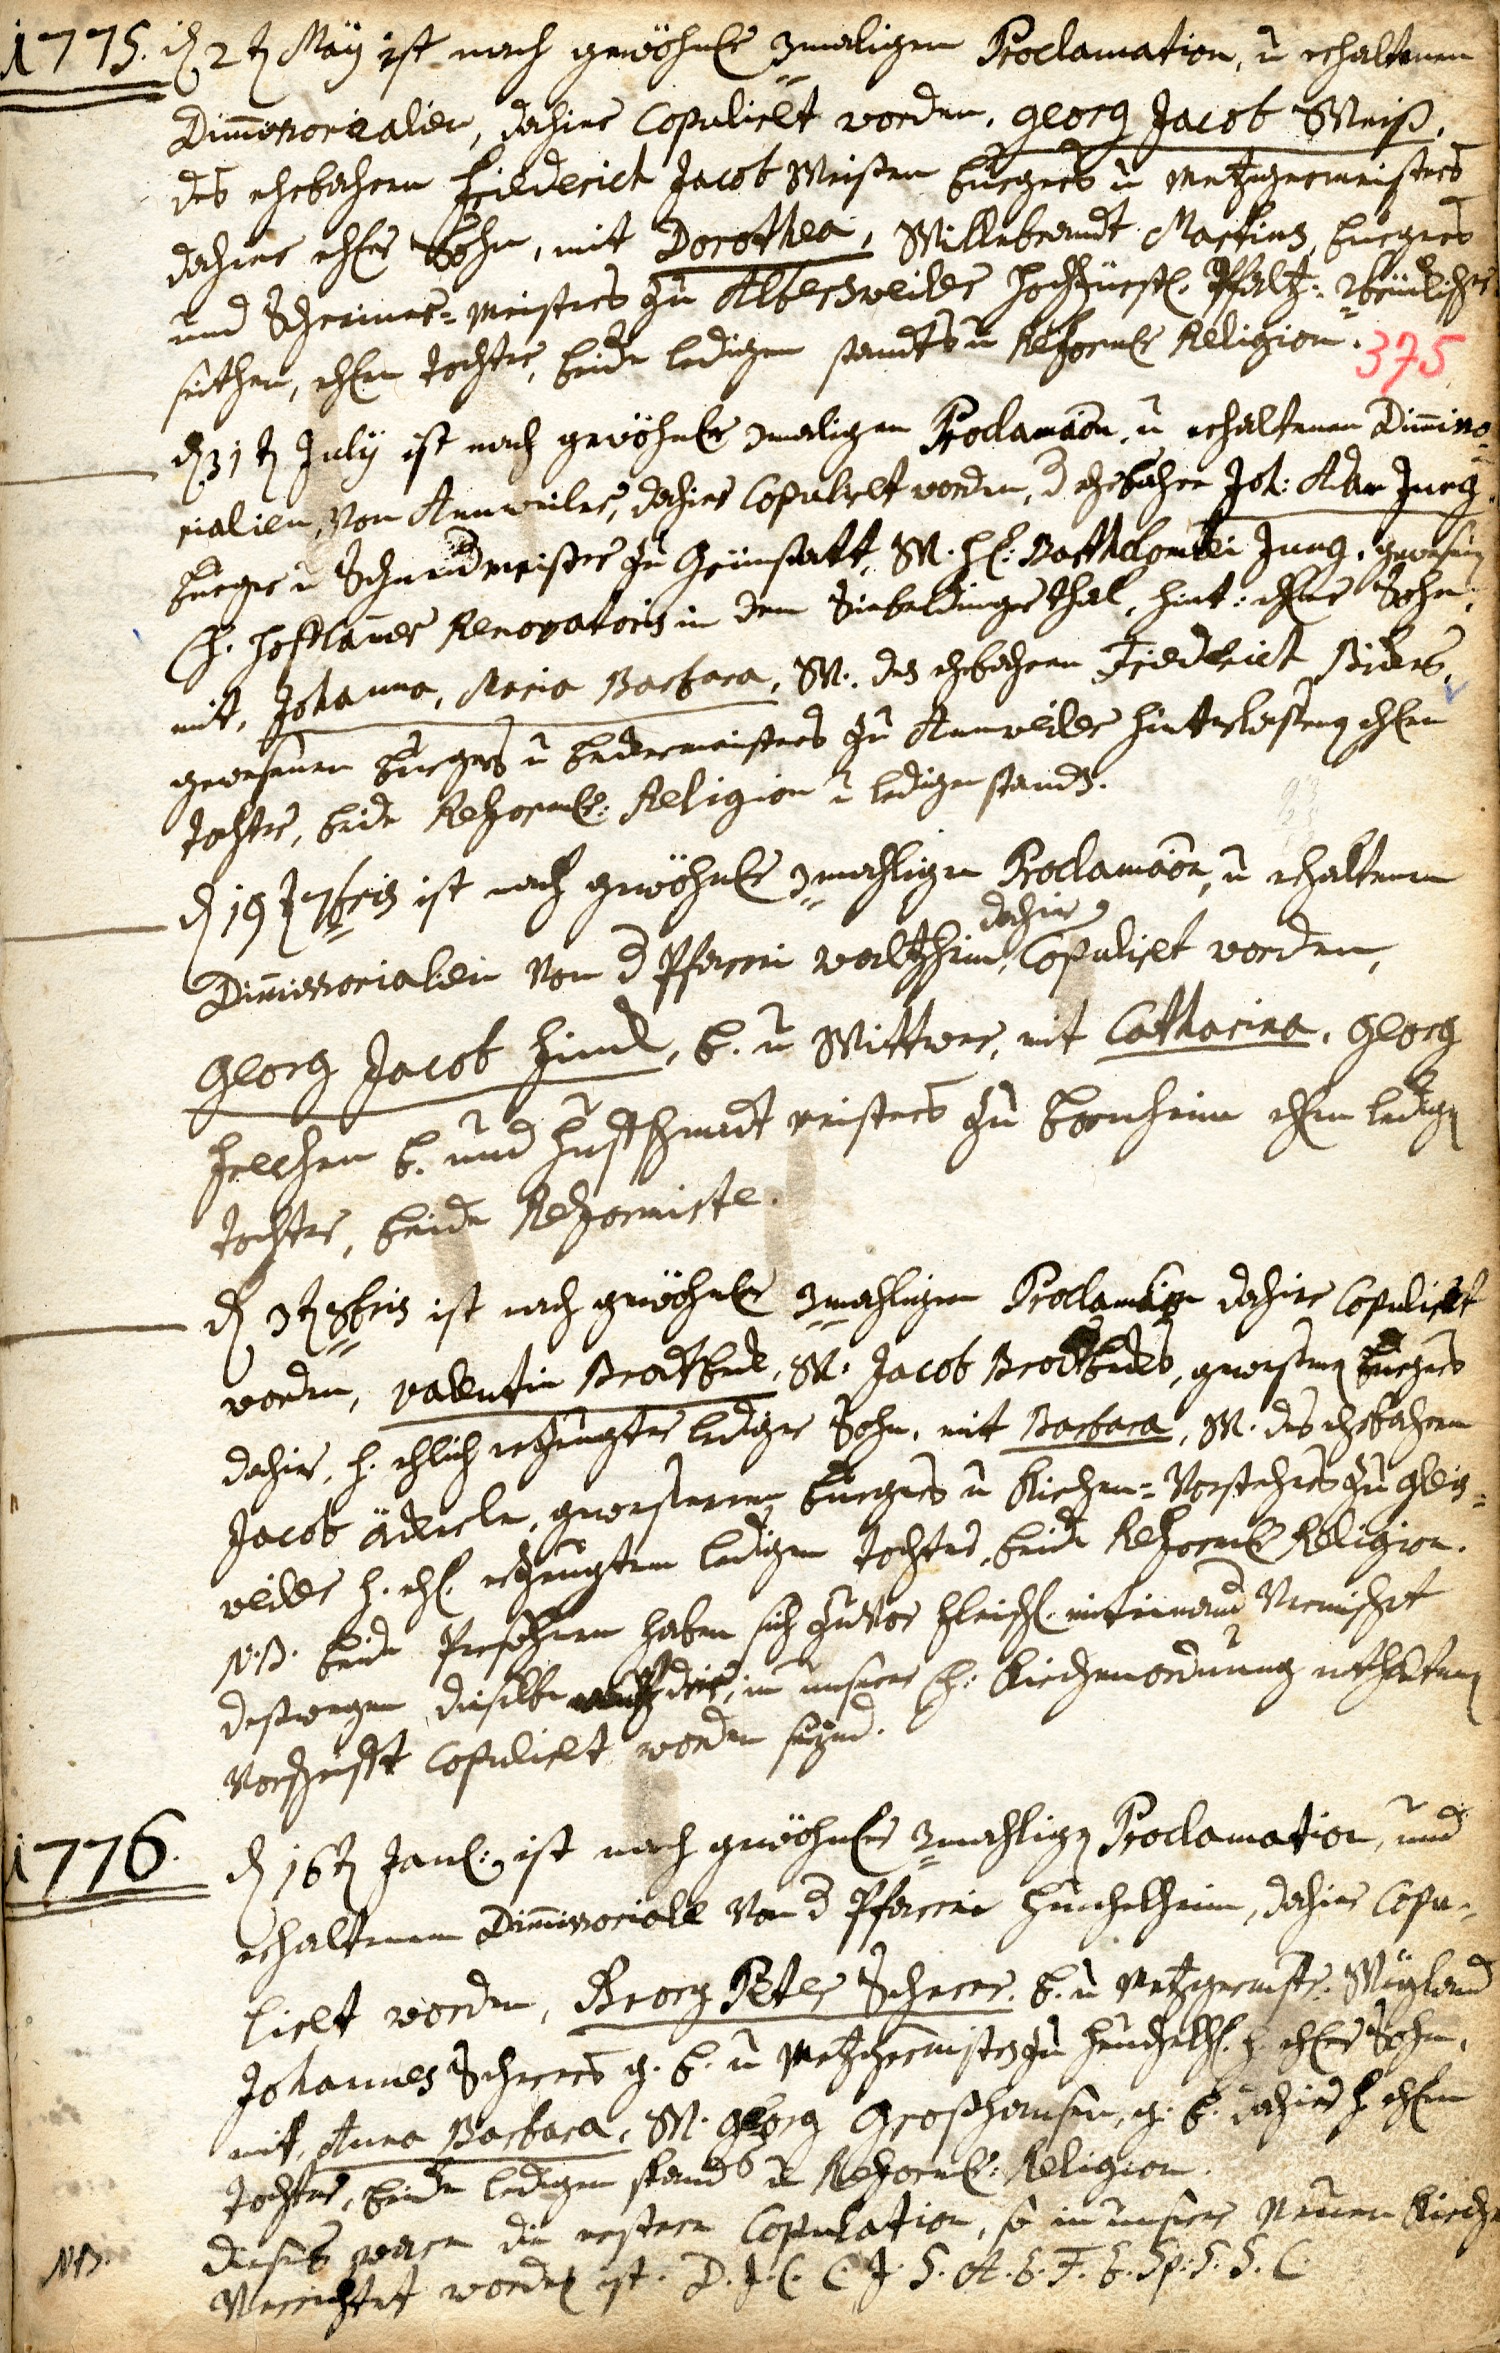 1775. d 2t May ist nach gewöhnler 3maligen Proclamation, u erhaltenen
Dimissorialien, dahier Copulirt worden, Georg Jacob Weiß,
des ehrbahren Friederich Jacob Weißen burgers u Metzgermeisters
dahier ehler Sohn, mit Dorothea, Willebrandt Martins, burgers
und Schreiner-meisters zu Albersweiler hochfürstl. Pfaltz-
seithen, ehlen Tochter, beide ledigen standts u Reformler Religion.
375
d 31t July ist nach gewöhnler 3maligen Proclamaōn, u erhaltenen Dimisso-
rialien, von Annweiler, dahier Copulirt worden, d ehrbahre Joh: Adam Jung,
burger u Schmidmeister zu Grünstatt, W. H: Barthlomei Jung, gewesene
h. Renovatoris in dem Siebeldinger thal, hint: ehler Sohn,
mit, Johanna, Maria Barbara, W. des ehrbahren Friedrich
gewesenen burgers u beckermeisters zu Annweiler hinterlassene ehlen
Tochter, beide Reformle: Religion u ledigen stands.
d 19t 7bris ist nach gewöhnler 3mahligen Proclamaōn, u erhaltenen
Dimissorialien von d Pfarrei dahier Copulirt worden,
Georg Jacob, b. u Wittwer, mit Catharina, Georg
b. und Huffschmidt meisters zu Bornheim ehlen ledige
Tochter, beide Reformirte.
d 3t 8bris ist nach gewöhnler 3mahligen Proclamaōn dahier Copulirt
worden, Valentin, W. Jacob, gewesene burgers
dahier, h. ehlich erzeugter lediger Sohn, mit Barbara, W. des ehrbahren
Jacob, gewesenen burgers u Kirchen-Vorstehers zu Gleis-
weiler h. ehl. erzeugten ledigen Tochter, beide Reformle Religion.
N.B. beide Persohnen haben sich zuvor fleischl. miteinand vermischt
deswegen dieselbe nach der, in unserer h: Kirchenordnung enthaltene
Vorschrifft Copulirt worden seynd.
1776. d 16t Janl: ist nach gewöhnler 3mahlige Proclamation, und
erhaltenem Dimissoriale von d Pfarrei Heuchelheim, dahier Copu-
lirt worden, Georg Peter Scherer, b. u Metzgermstr. Weyland
Johannes Scherers g. b. u Metzgermstrs zu Heuchelh. h. ehler Sohn,
mit, Anna Barbara, W. Georg Großhansen, g. b. dahier h ehlen
Tochter, beide ledigen stands u Reformle: Religion.
NB. dieses waren die erstere Copulation, so in unserer Neuen Kirche
Verrichtet worden ist. D. J. C. C. J. S. A. E. F. E. Sp. S. S. C.